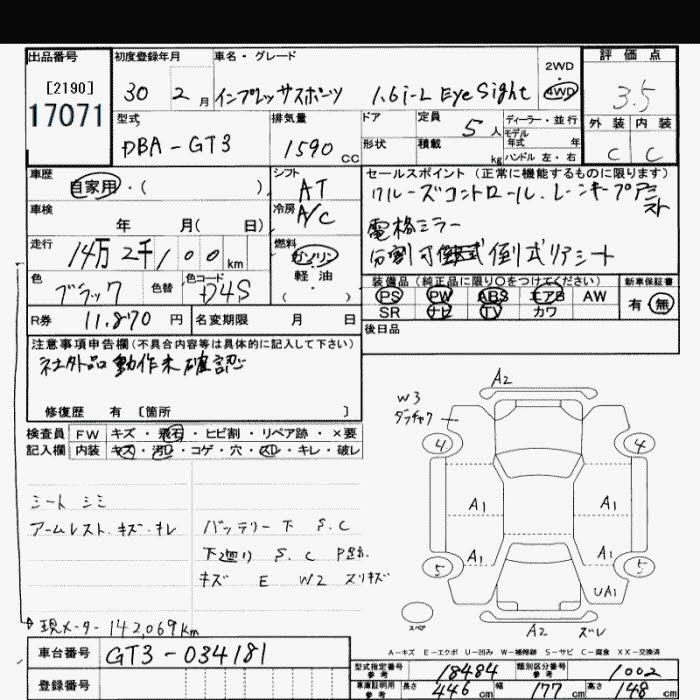 出品番号 初度登録年月 車名・グレード 2WD 評価点
[2190] 30 2月 インプレッサスポーツ 1.6i-L EyeSight 4WD 3.5
17071 型式 排気量 ドア 定員 5人 ディーラー・並行 外装 内装
DBA-GT3 1590cc 形状 積載 kg モデル年式 年 C C
ハンドル 左・右
車歴 シフト セールスポイント (正常に機能するものに限ります)
自家用・( ) AT クルーズコントロール.レーンキープアシスト
車検 冷房 A/C 電格ミラー
年 月( 日) 分割可倒式リアシート
走行 14万2千100km 燃料 ガソリン
軽・油
( )
色 ブラック 色替 色コード D4S 装備品(純正品に限り〇をつけてください) 新車保証書
PS PW ABS エアB AW 有・無
SR ナビ TV カワ
R券 11,870円 名変期限 月 日 後日品
注意事項申告欄(不具合内容等は具体的に記入して下さい)
社外品動作未確認
修復歴 有 [箇所 ]
検査員 FW キズ・飛石・ヒビ割・リペア跡・×要
記入欄 内装 キズ・汚れ・コゲ・穴・スレ・キレ・破レ
シート シミ
アームレスト.キズ.キレ バッテリー下 S.C
下廻り S.C
キズ E W2 スリキズ
現メーター 142,069km
車台番号 GT3-034181
登録番号
A2
W3
4 4
A1 A1
A1 A1
5 5
UA1
スペア A2 ズレ
A-キズ E-エクボ U-凹み W-補修跡 S-サビ C-腐食 XX-交換済
型式指定番号 参考 18484 類別区分番号 参考 1002
車庫証明用 参考 長さ 446cm 幅 177cm 高さ 148cm